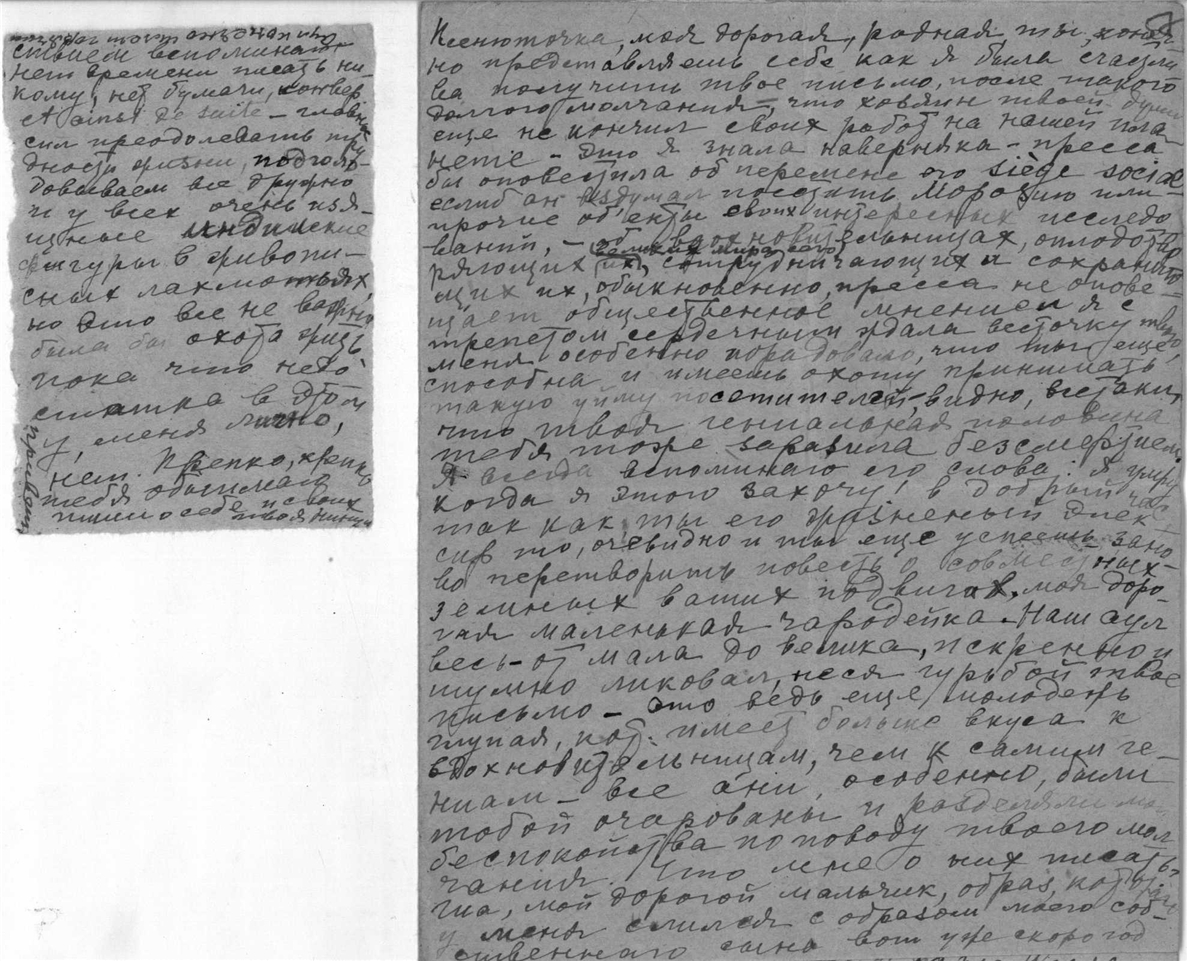 ствием вспоминают
нет времени писать ни-
кому, нет бумаги, конвер
et ainsi de suite – главн
сил преодолевать тру
дности жизни, подголо-
довываем все дружно
и у всех очень изя-
щные индийские
фигуры в живопи-
сных лахмотьях,
но это все не важно
была бы охота жить
пока что недо
статка в этом
у меня лично,
нет. Крепко, крепко
тебя обнимаю
пиши о себе и своих
твоя Нина
Ксенюточка, моя дорогая, родная ты, конеч
но представляешь себе как я была счастли
ва получить твое письмо, после такого
долгого молчания, что хозяин твоей души
еще не кончил своих работ на нашей пла
нете – это я знала наверняка – пресса
бы оповестила об перемене его siège social
еслиб он вздумал посетить
прочие объекты своих интересных исследо
ваний, – об вдохновительницах, оплодотво
ряющих их, сотрудничающих и сохраняю
щих их, обыкновенно, пресса не опове-
щает общественное мнение и я с
трепетом сердечным ждала весточку твою,
меня особенно порадовало, что ты еще
способна и имеешь охоту принимать
такую уйму посетителей, видно, всетаки,
что твоя гениальная половина
тебя тоже заразила безсмертием.
Я всегда вспоминаю его слова: я умру
когда я этого захочу! в добрый час,
так как ты его жизненный элек-
сир то, очевидно и ты еще успеешь зано-
во претворить повесть о совместных
земных ваших подвигах, моя доро-
гая маленькая чародейка – Наш аул
весь – от мала до велика, искренно и
шумно ликовал, неся гурьбой твое
письмо – это ведь еще молодежь
глупая, кот. имеет больше вкуса к
вдохновительницам, чем к самим ге-
ниям – все они, особенно, были
тобой очарованы и разделяли мои
беспокойства по поводу твоего мол-
чания. Что мне о них писать,
мой дорогой мальчик, образ, кот.
у меня слился с образом моего соб-
ственного сына вот уже скоро год